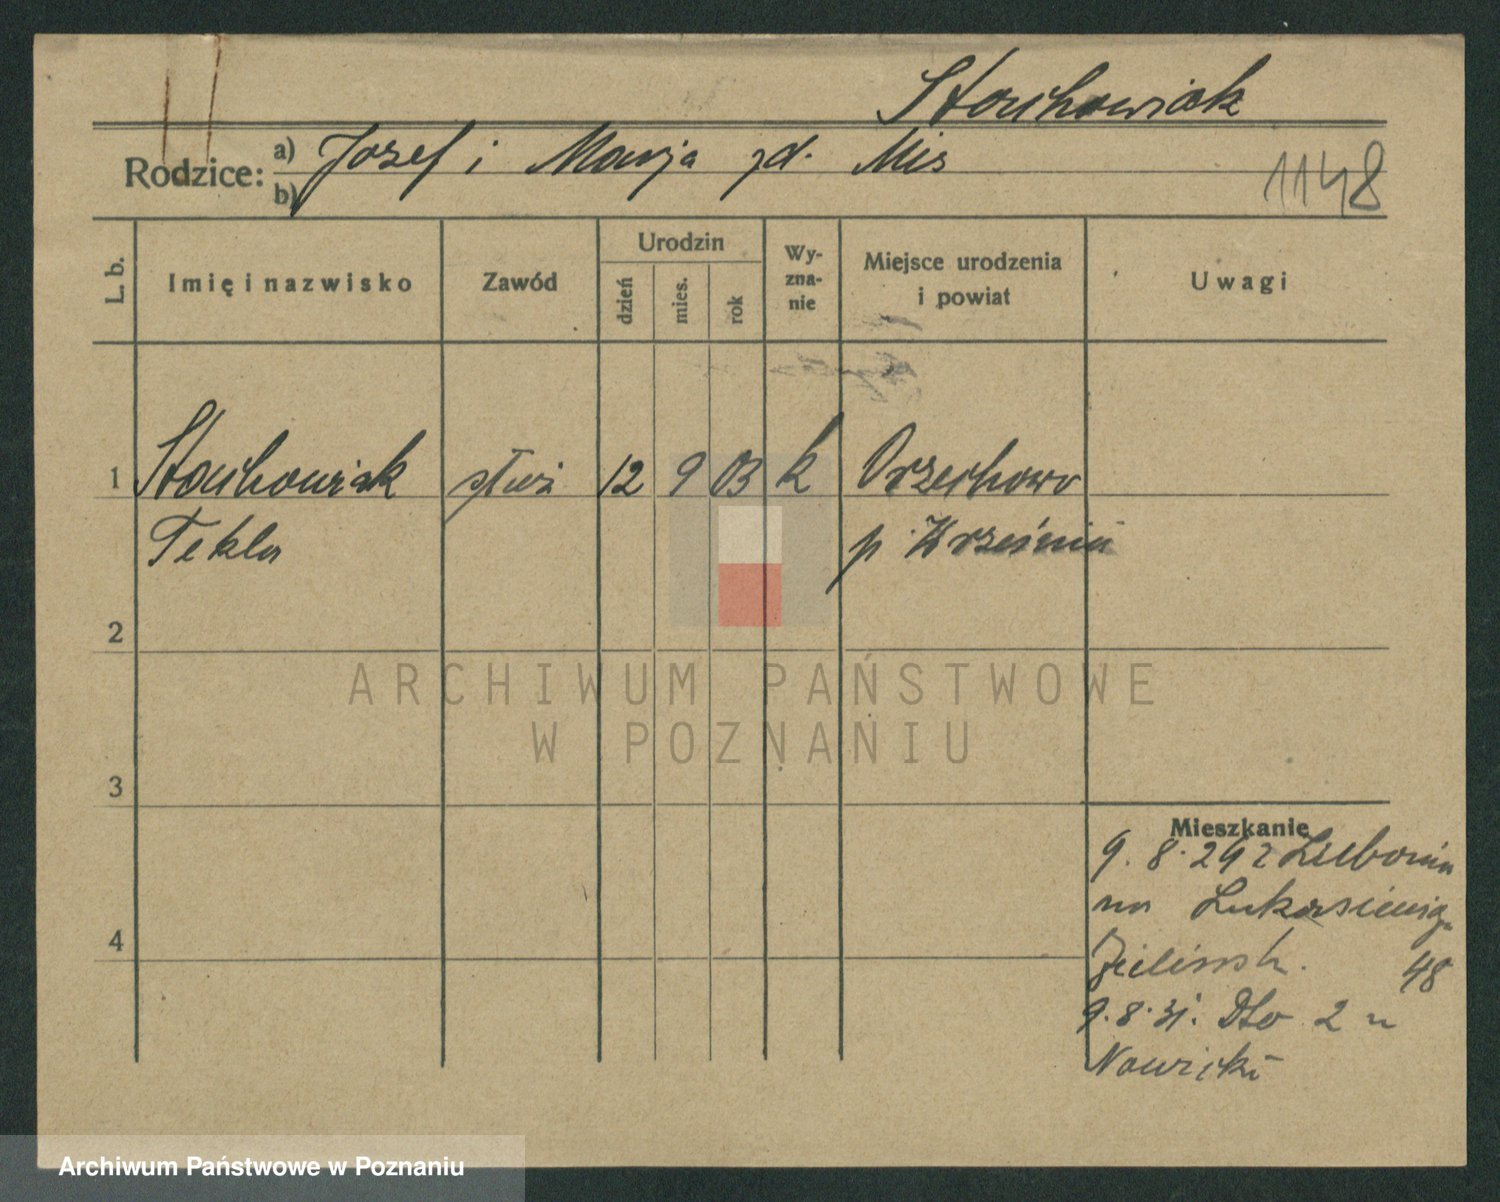 Stachowiak
Rodzice: a) Jozef i Marja zd. Mis
b)
1148
L. b. Imię i nazwisko Zawód Urodzin dzień mies. rok Wy-zna-nie Miejsce urodzenia i powiat Uwagi
1 Stachowiak służ 12 9 03 k Orzechowo
Tekla p. Września
2
3
4
Mieszkanie
9.8.29 z Lubonia
na Łukasiewicza
Zielińsk. 48
9.8.31. Dto 2 u
Nowicki
ARCHIWUM PAŃSTWOWE
W POZNANIU
Archiwum Państwowe w Poznaniu